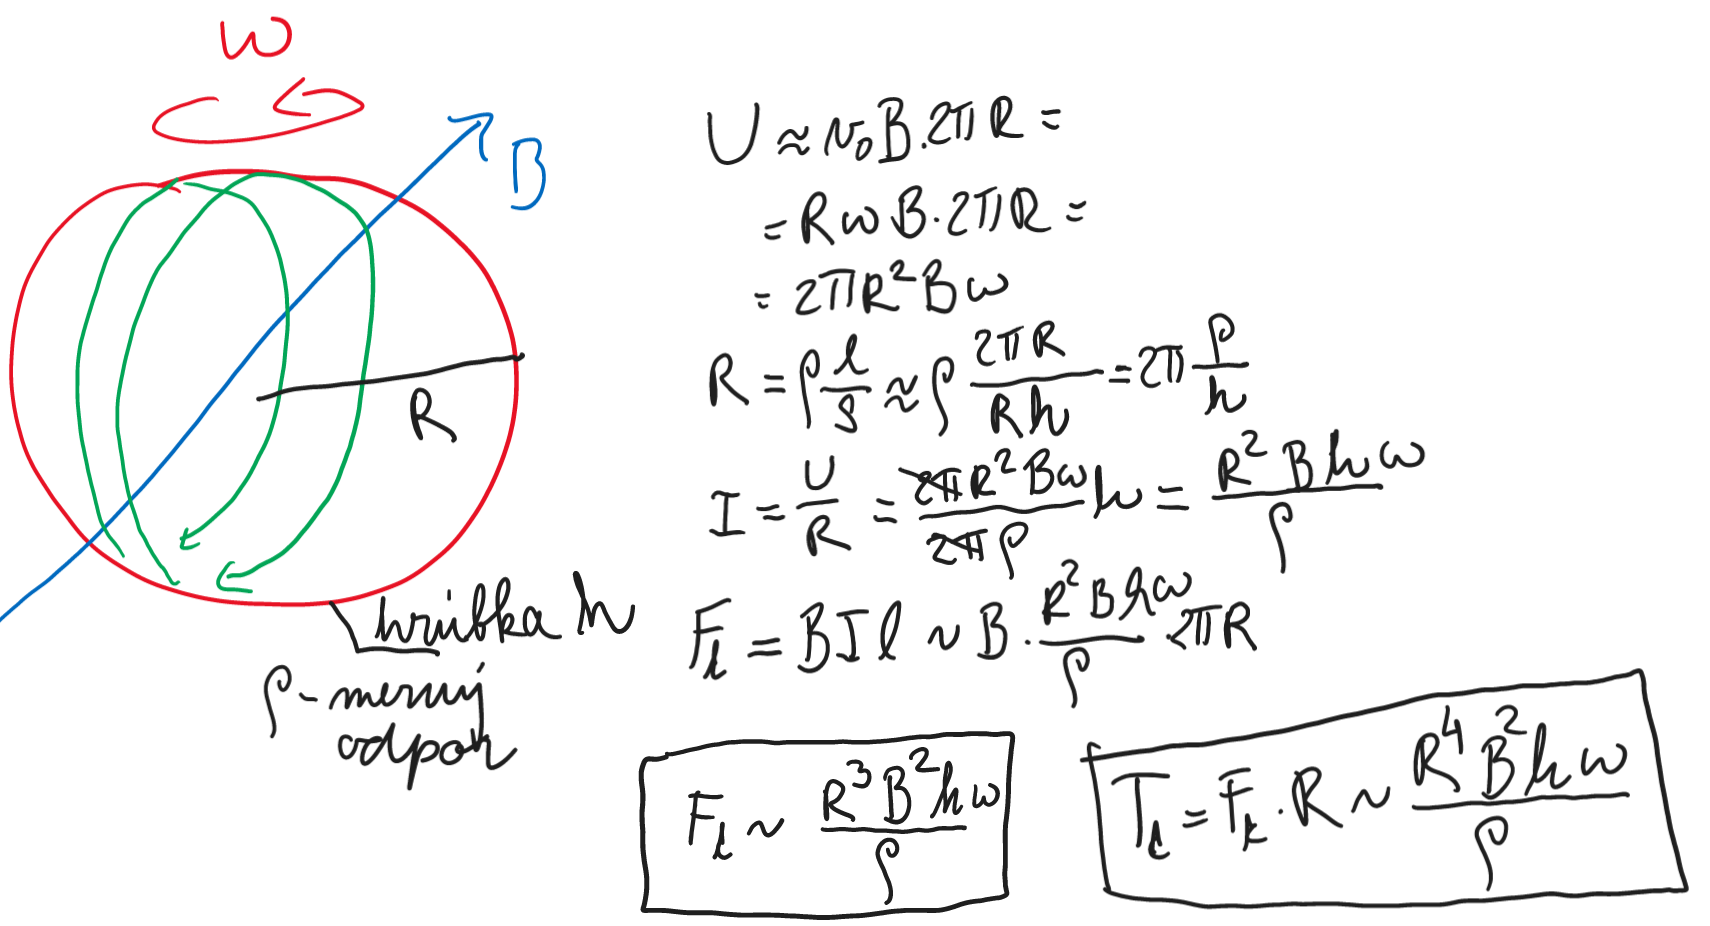 ω
B
R
hrúbka h
ρ - merný
odpor
U ≈ v₀B·2πR =
= RωB·2πR =
= 2πR²Bω
R = ρ l/S ≈ ρ 2πR/Rh = 2π ρ/h
I = U/R = 2πR²Bω/2πρ h = R²Bhω/ρ
F_L = BIl ~ B · R²Bhω/ρ · 2πR
F_L ~ R³B²hω/ρ
T_L = F_L · R ~ R⁴B²hω/ρ